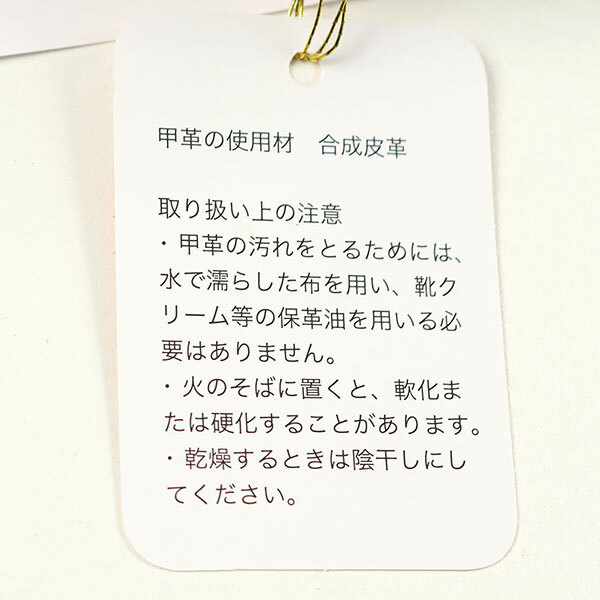 甲革の使用材　合成皮革
取り扱い上の注意
・甲革の汚れをとるためには、
水で濡らした布を用い、靴ク
リーム等の保革油を用いる必
要はありません。
・火のそばに置くと、軟化ま
たは硬化することがあります。
・乾燥するときは陰干しにし
てください。